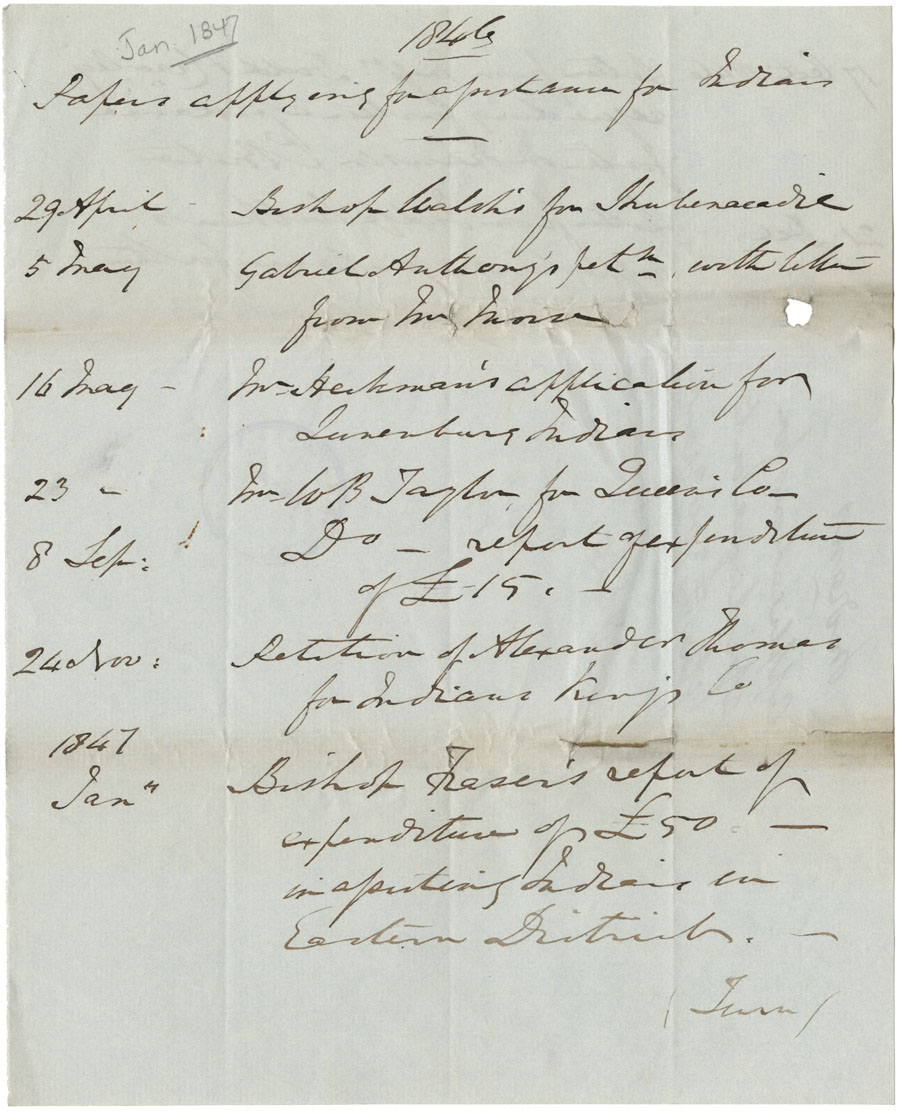 Jan. 1847
1846
Papers applying for assistance for Indians
29 April - Bishop Walsh's for Shubenacadie
5 May Gabriel Anthony's petn. with letter
from Mr Morse
16 May - Mr Heckman's application for
Lunenburg Indians
23 - Mr W B Taylor for Queen's Co
8 Sep: Do - report of expenditure
of £15. -
24 Nov: Petition of Alexander Thomas
for Indians King's Co
1847
Jany Bishop Fraser's report of
expenditure of £50 -
in assisting Indians in
Eastern Districts. -
(Turn)